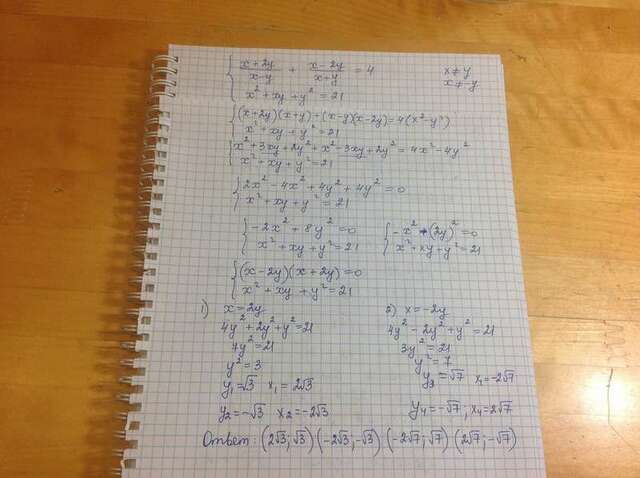 { (x+2y)/(x-y) + (x-2y)/(x+y) = 4   x≠y
x² + xy + y² = 21   x≠-y
{ (x+2y)(x+y)+(x-y)(x-2y)=4(x²-y²)
x² + xy + y² = 21
x² + 3xy + 2y² + x² - 3xy + 2y² = 4x² - 4y²
x² + xy + y² = 21
{ 2x² - 4x² + 4y² + 4y² = 0
x² + xy + y² = 21
{ -2x² + 8y² = 0   { -x² + (2y)² = 0
x² + xy + y² = 21   x² + xy + y² = 21
{ (x-2y)(x+2y)=0
x² + xy + y² = 21
1) x = 2y   2) x = -2y
4y² + 2y² + y² = 21   4y² - 2y² + y² = 21
7y² = 21   3y² = 21
y² = 3   y² = 7
y₁ = √3 x₁ = 2√3   y₃ = √7 x₃ = -2√7
y₂ = -√3 x₂ = -2√3   y₄ = -√7; x₄ = 2√7
Ответ: (2√3; √3) (-2√3; -√3) (-2√7; √7) (2√7; -√7)